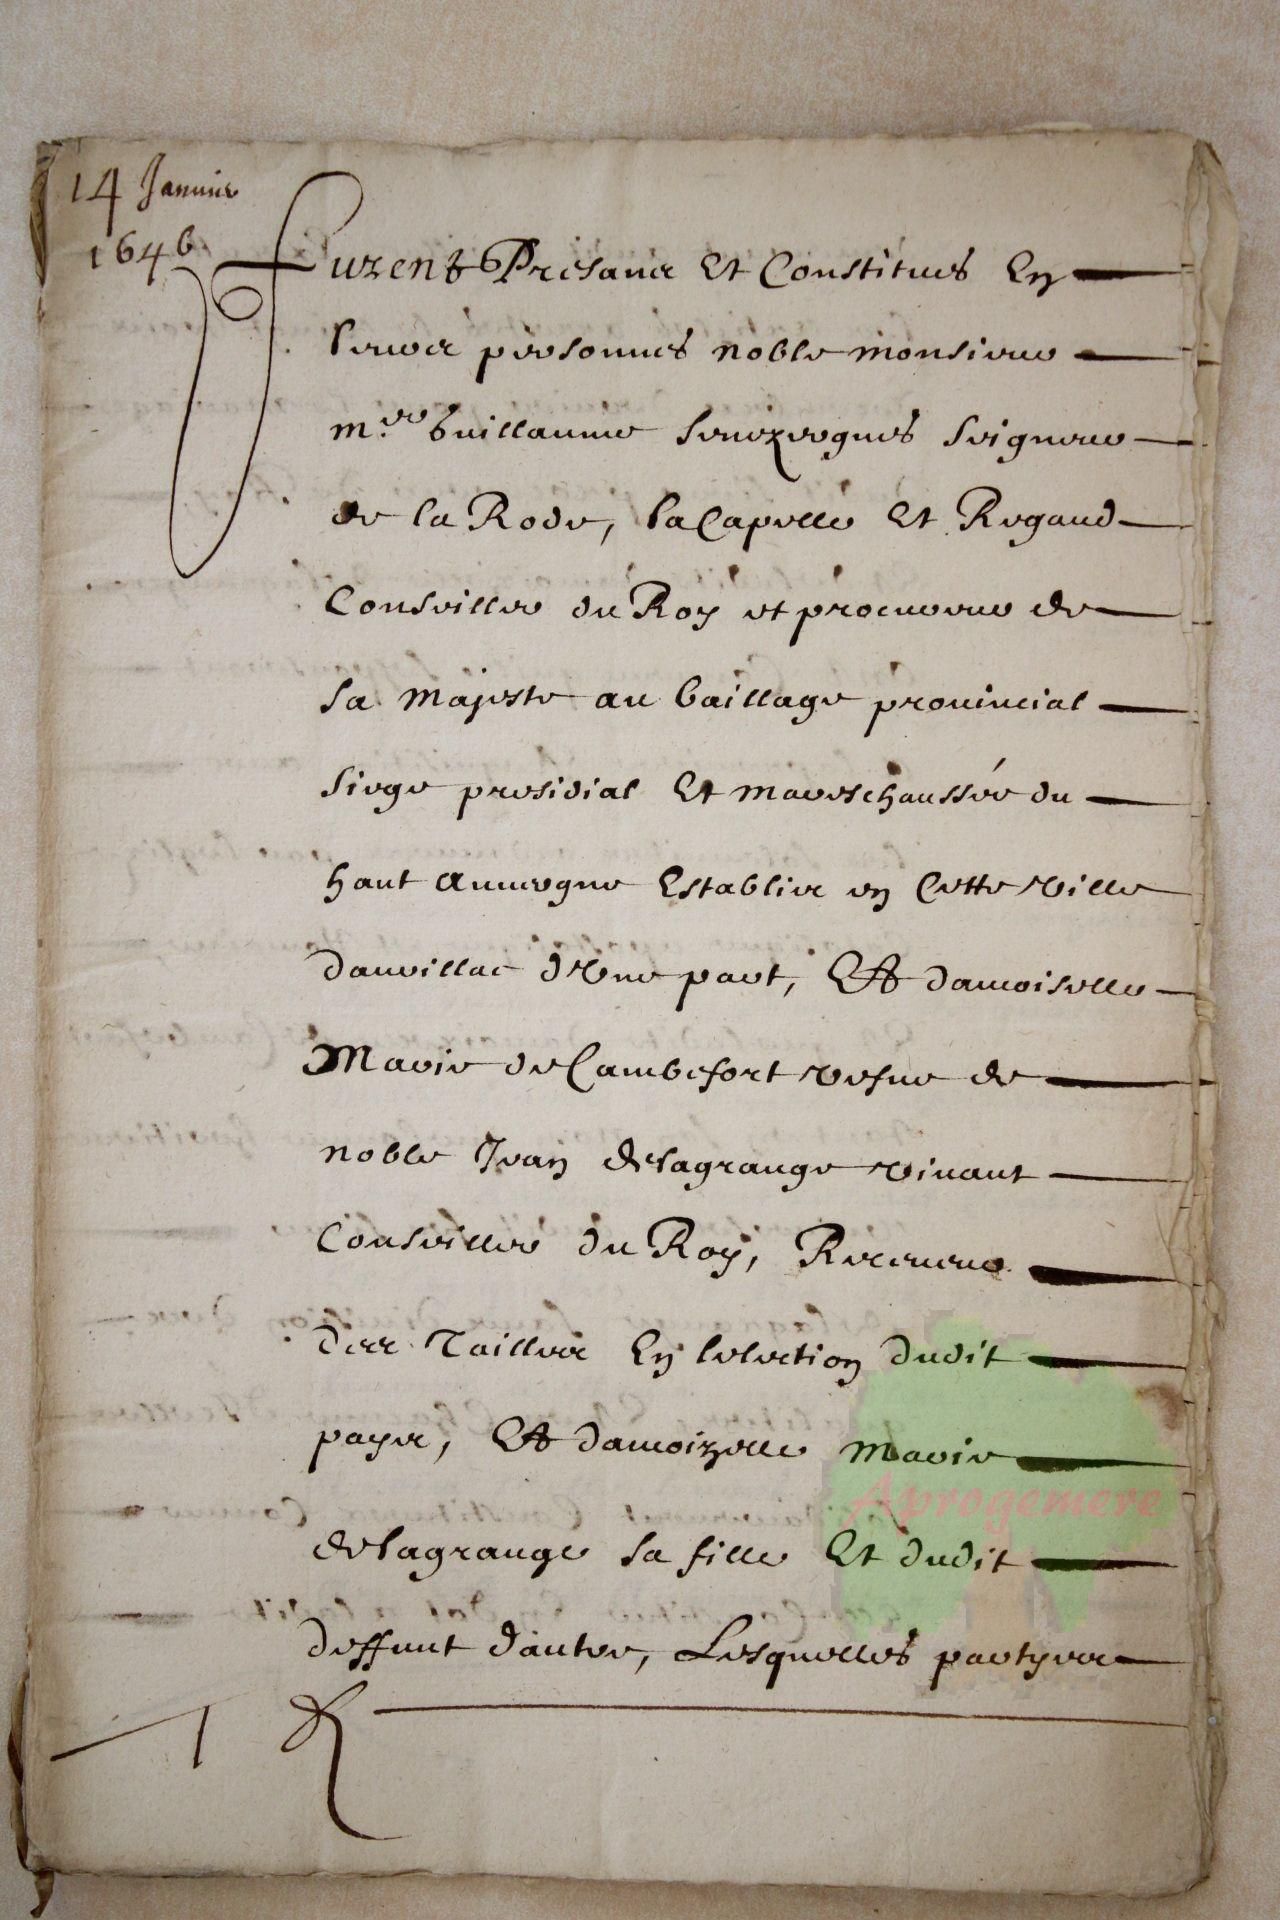 14 Januier
1646
Furent Presans Et Constitues En
leurs personnes noble monsieur
m.re Guillaume Senezergues Seigneur
de la Rode, la Capelle Et Regaud
Conseiller du Roy et procureur de
sa majeste au bailliage prouincial
siege presidial Et mareschaussée du
haut auuergne Establis en Cette ville
daurillac d'vne part, Et damoiselle
Marie de Cambefort vefue de
noble Jean delagrange viuant
Conseiller du Roy, Receueur
des Tailles En lelection dudit
pays, Et damoizelle Marie
delagrange sa fille Et dudit
deffunt dautre, Lesquelles partyes
Aprogemere